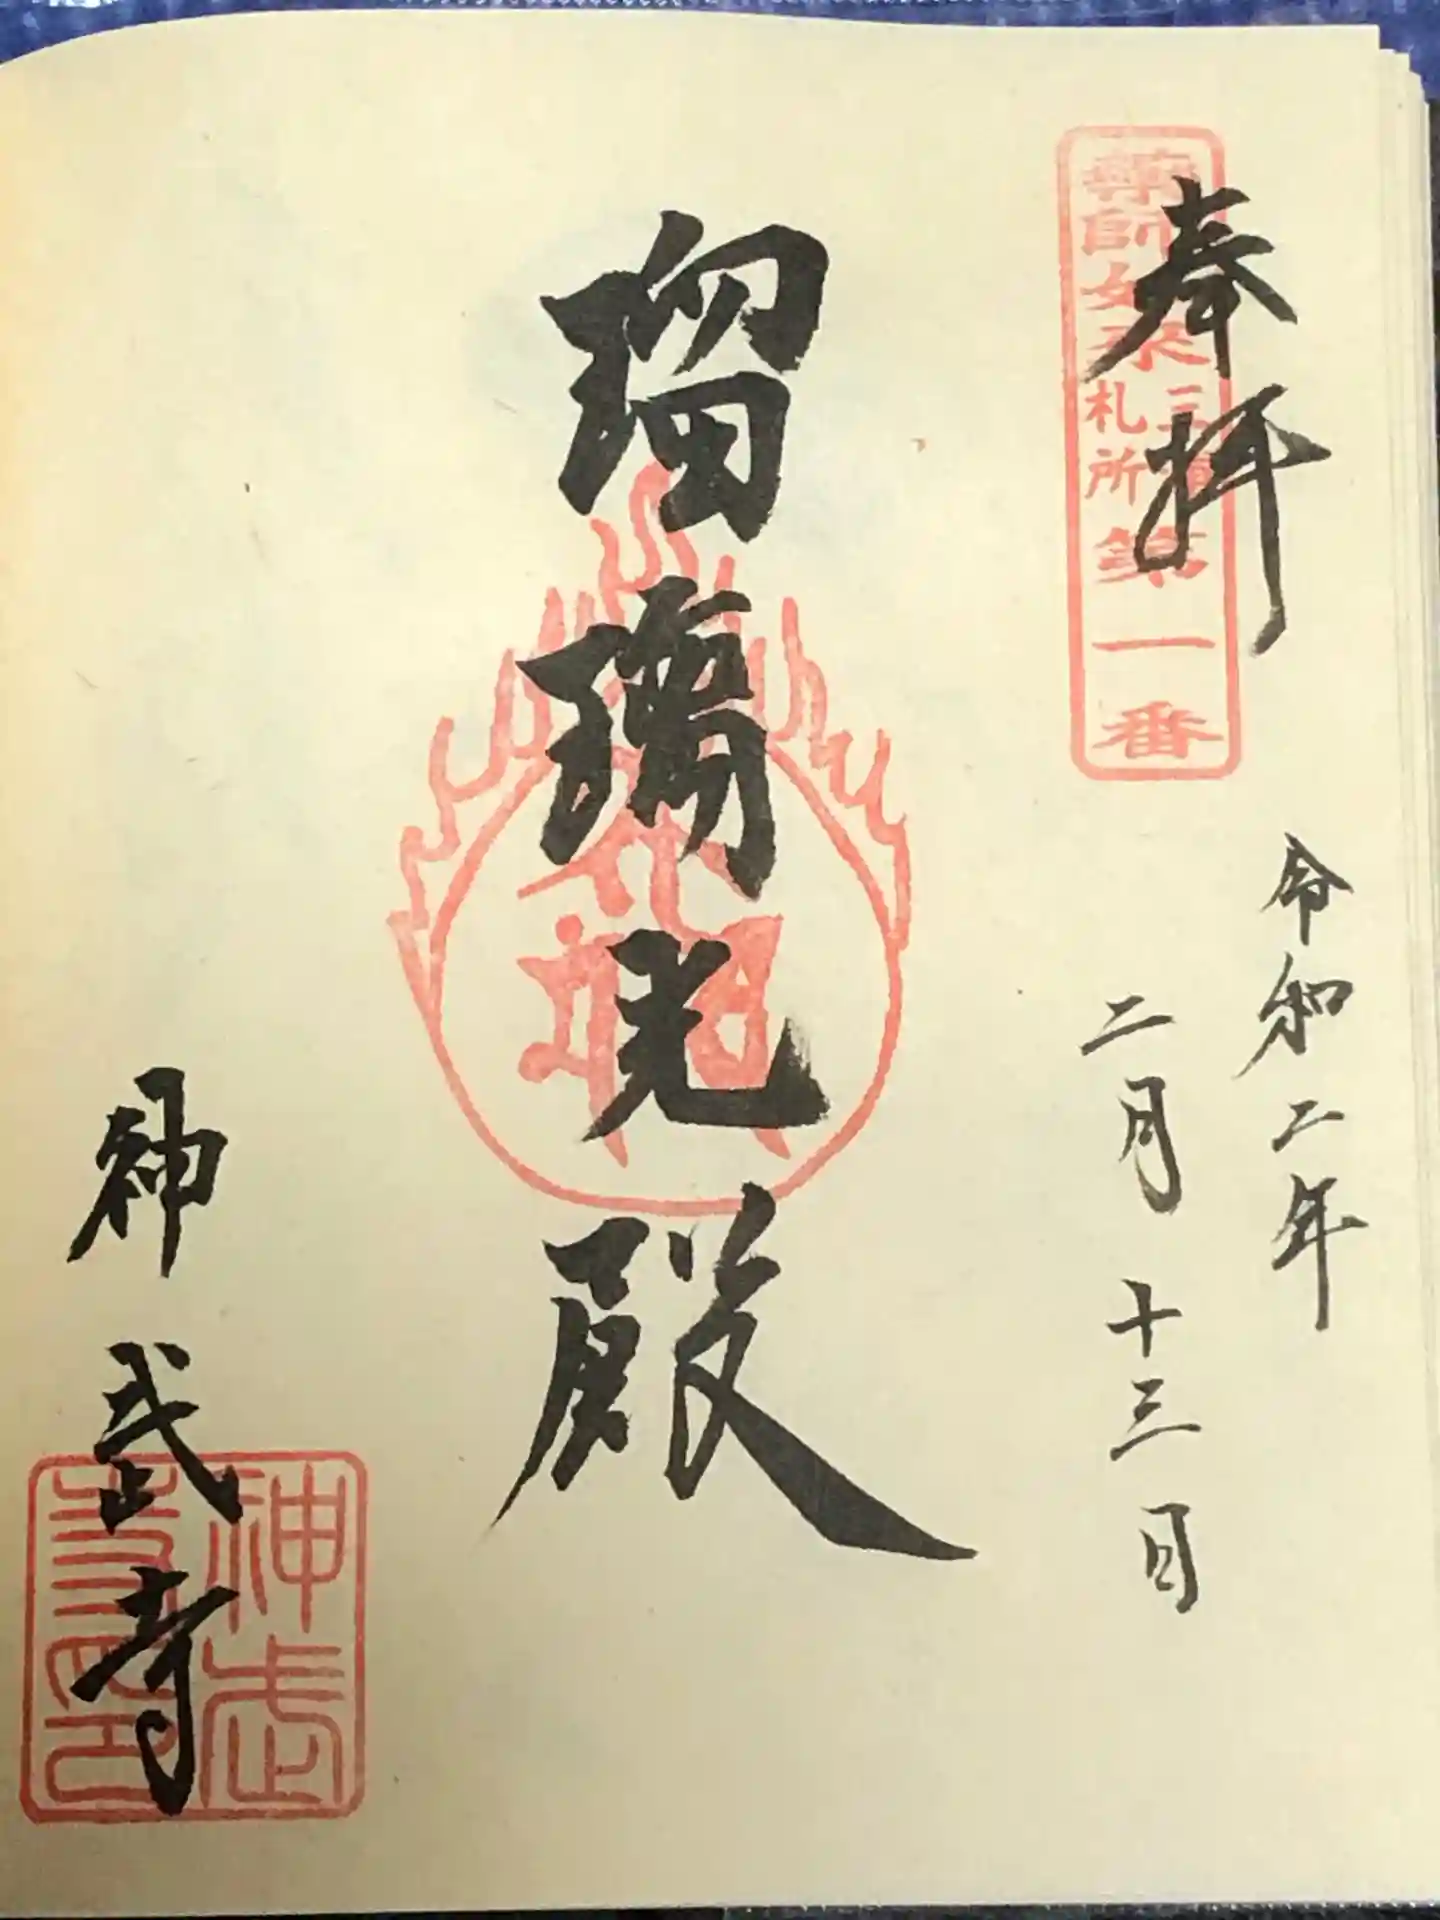 奉拝
薬師如来三河札所第一番
令和二年
二月十三日
瑠璃光殿
神武寺
神武寺印